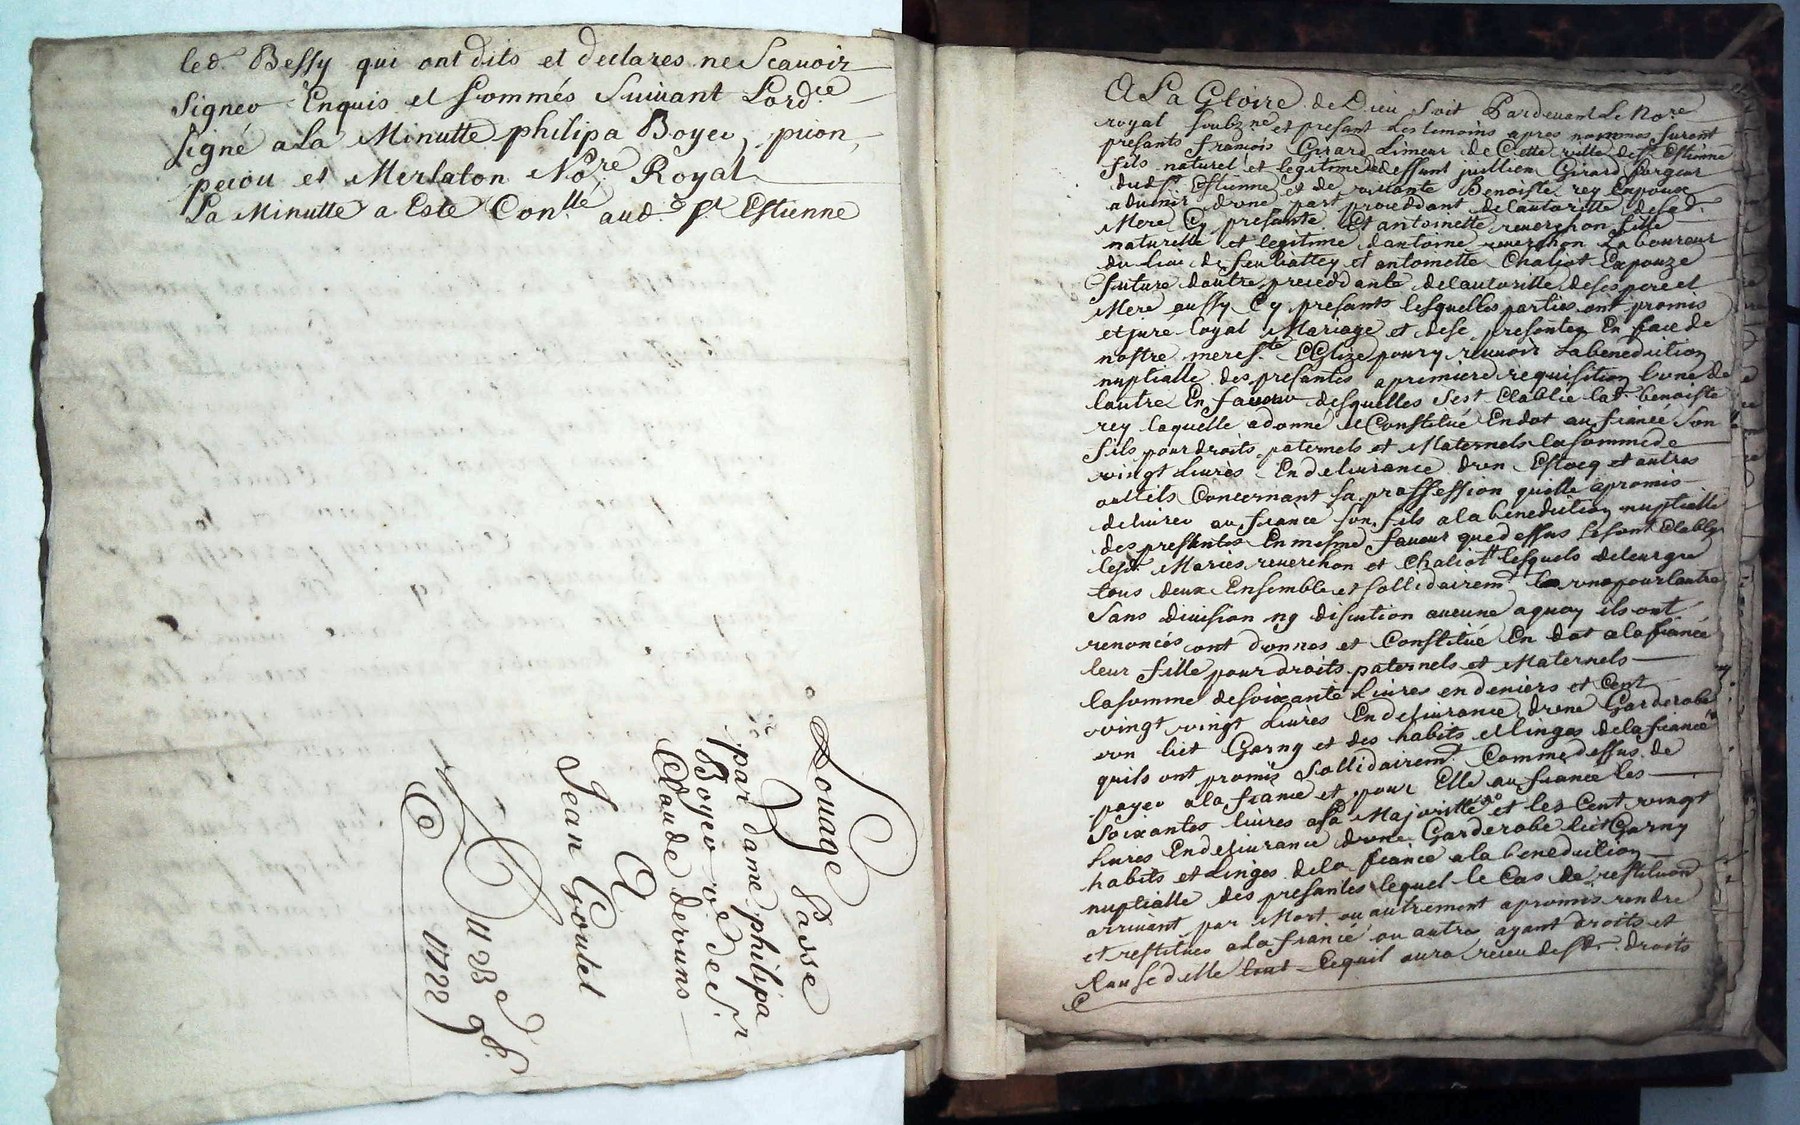 led. Bessy qui ont dits et declares ne Scauoir
Signer Enquis et Sommés Suiuant Lord.ce
Signé a la Minutte philipa Boyer, prion,
periou et Merlaton No.re Royal
La Minutte a Esté Con.llé aud. St Estienne
Louage Passé
par dame philipa
Boyer v.e de Sr
Claude deruins
A
Jean Croutel
Du 23e 9b.
1722
A La Gloire de Dieu Soit Pardeuant Le No.re
royal Soubz.né et presant Les temoins apres nommés furent
presants francois Girard Limeur de Cette ville de St Estienne
fils naturel et legitime de deffunt jullien Girard forgeur
dud St Estienne et de viuante Benoiste rey Enpoux
aduenir d'une part proceddant de Lautoritte de Sad.
Mere Cy presante Et antoinette reuerchon fille
naturelle et legitime dantoine reuerchon Laboureur
du Lieu de et antoinette Chaliot Expouze
future dautre proceddante de Lautoritte de Ses pere et
Mere aussy Cy presants lesquelles parties ont promis
et jure loyal Mariage et de Se presenter En face de
nostre mere S.te EEglize pour y receuoir La benediction
nuptialle des presantes a premiere requisition Lune de
lautre En faueur desquelles Sest Etablie lad. benoiste
rey laquelle a donné et Constitué En dot au fiancé Son
fils pour droits paternels et Maternels la Somme de
vingt Liures En deliurance dun Estocq et autres
outtils Concernant Sa proffession quelle a promis
deliurer au fiancé Son fils a la benediction nuptialle
des presentes En mesme faueur que dessus Se sont Etablis
lesd. Mariés reuerchon et Chaliot lesquels de leur gre
tous deux Ensemble et Sollidairem.t Lun pour Lautre
Sans diuision ny discution aucune a quoy ils ont
renoncés ont donnes et Constitué En dot a la fiancé
leur fille pour droits paternels et Maternels
la Somme de Soixante Liures en deniers et Cent
vingt vingt Liures En deliurance dune Garderobe
un lict Garny et des habits et linges de la fiancé
quils ont promis Sollidairem.t Comme dessus de
payer a la fiancé et pour Elle au fiancé les
Soixantes liures a Sa Majoritté et les Cent vingt
liures En deliurance dune Garderobe lict Garny
habits et Linges de la fiancé a la benediction
nuptialle des presantes lequel le Cas de restituon
arriuant par Mort ou autrement a promis rendre
et restituer a la fiancé ou autres ayant droits et
Cause delle tout Cequil aura reçeu desd. droits